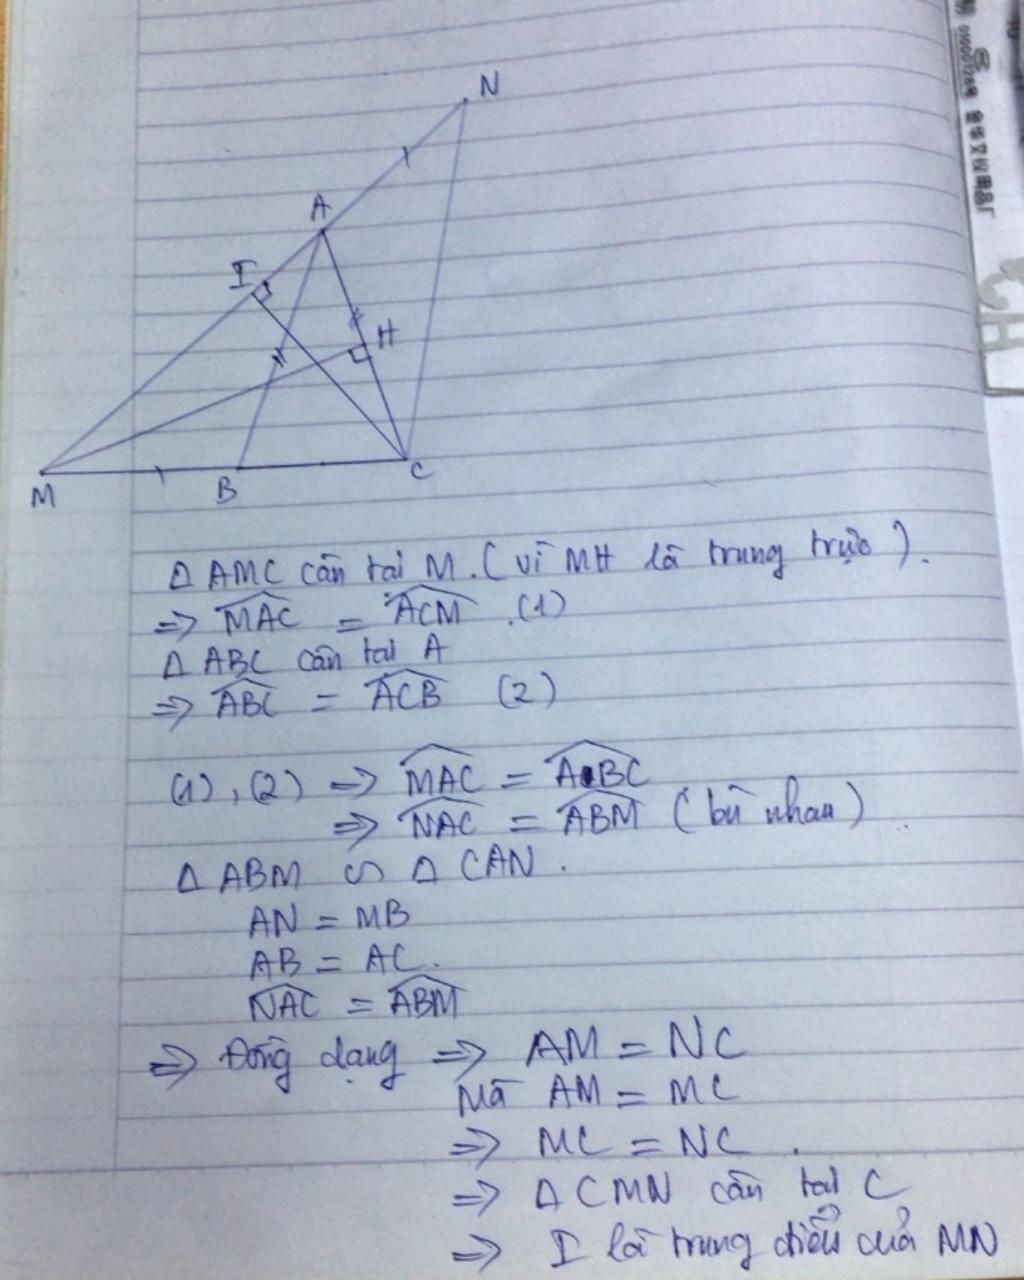 N
A
I
H
M
B
C
Δ AMC cân tại M. (vì MH là trung trực).
=> MAC = ACM .(1)
Δ ABC cân tại A
=> ABC = ACB (2)
(1), (2) => MAC = ABC
=> NAC = ABM (bù nhau).
Δ ABM ∽ Δ CAN.
AN = MB
AB = AC.
NAC = ABM
=> Đồng dạng => AM = NC
Mà AM = MC
=> MC = NC.
=> Δ CMN cân tại C
=> I là trung điểm của MN
CH